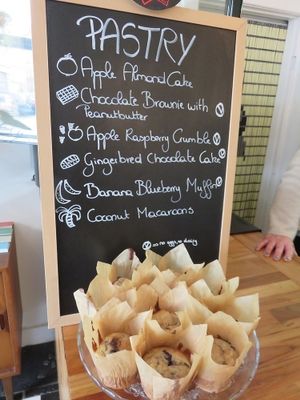 PASTRY
Apple Almond Cake
Chocolate Brownie with
Peanutbutter
Apple Raspberry Crumble
Gingerbred Chocolate Cake
Banana Blueberry Muffin
Coconut Macaroons
no eggs, no dairy